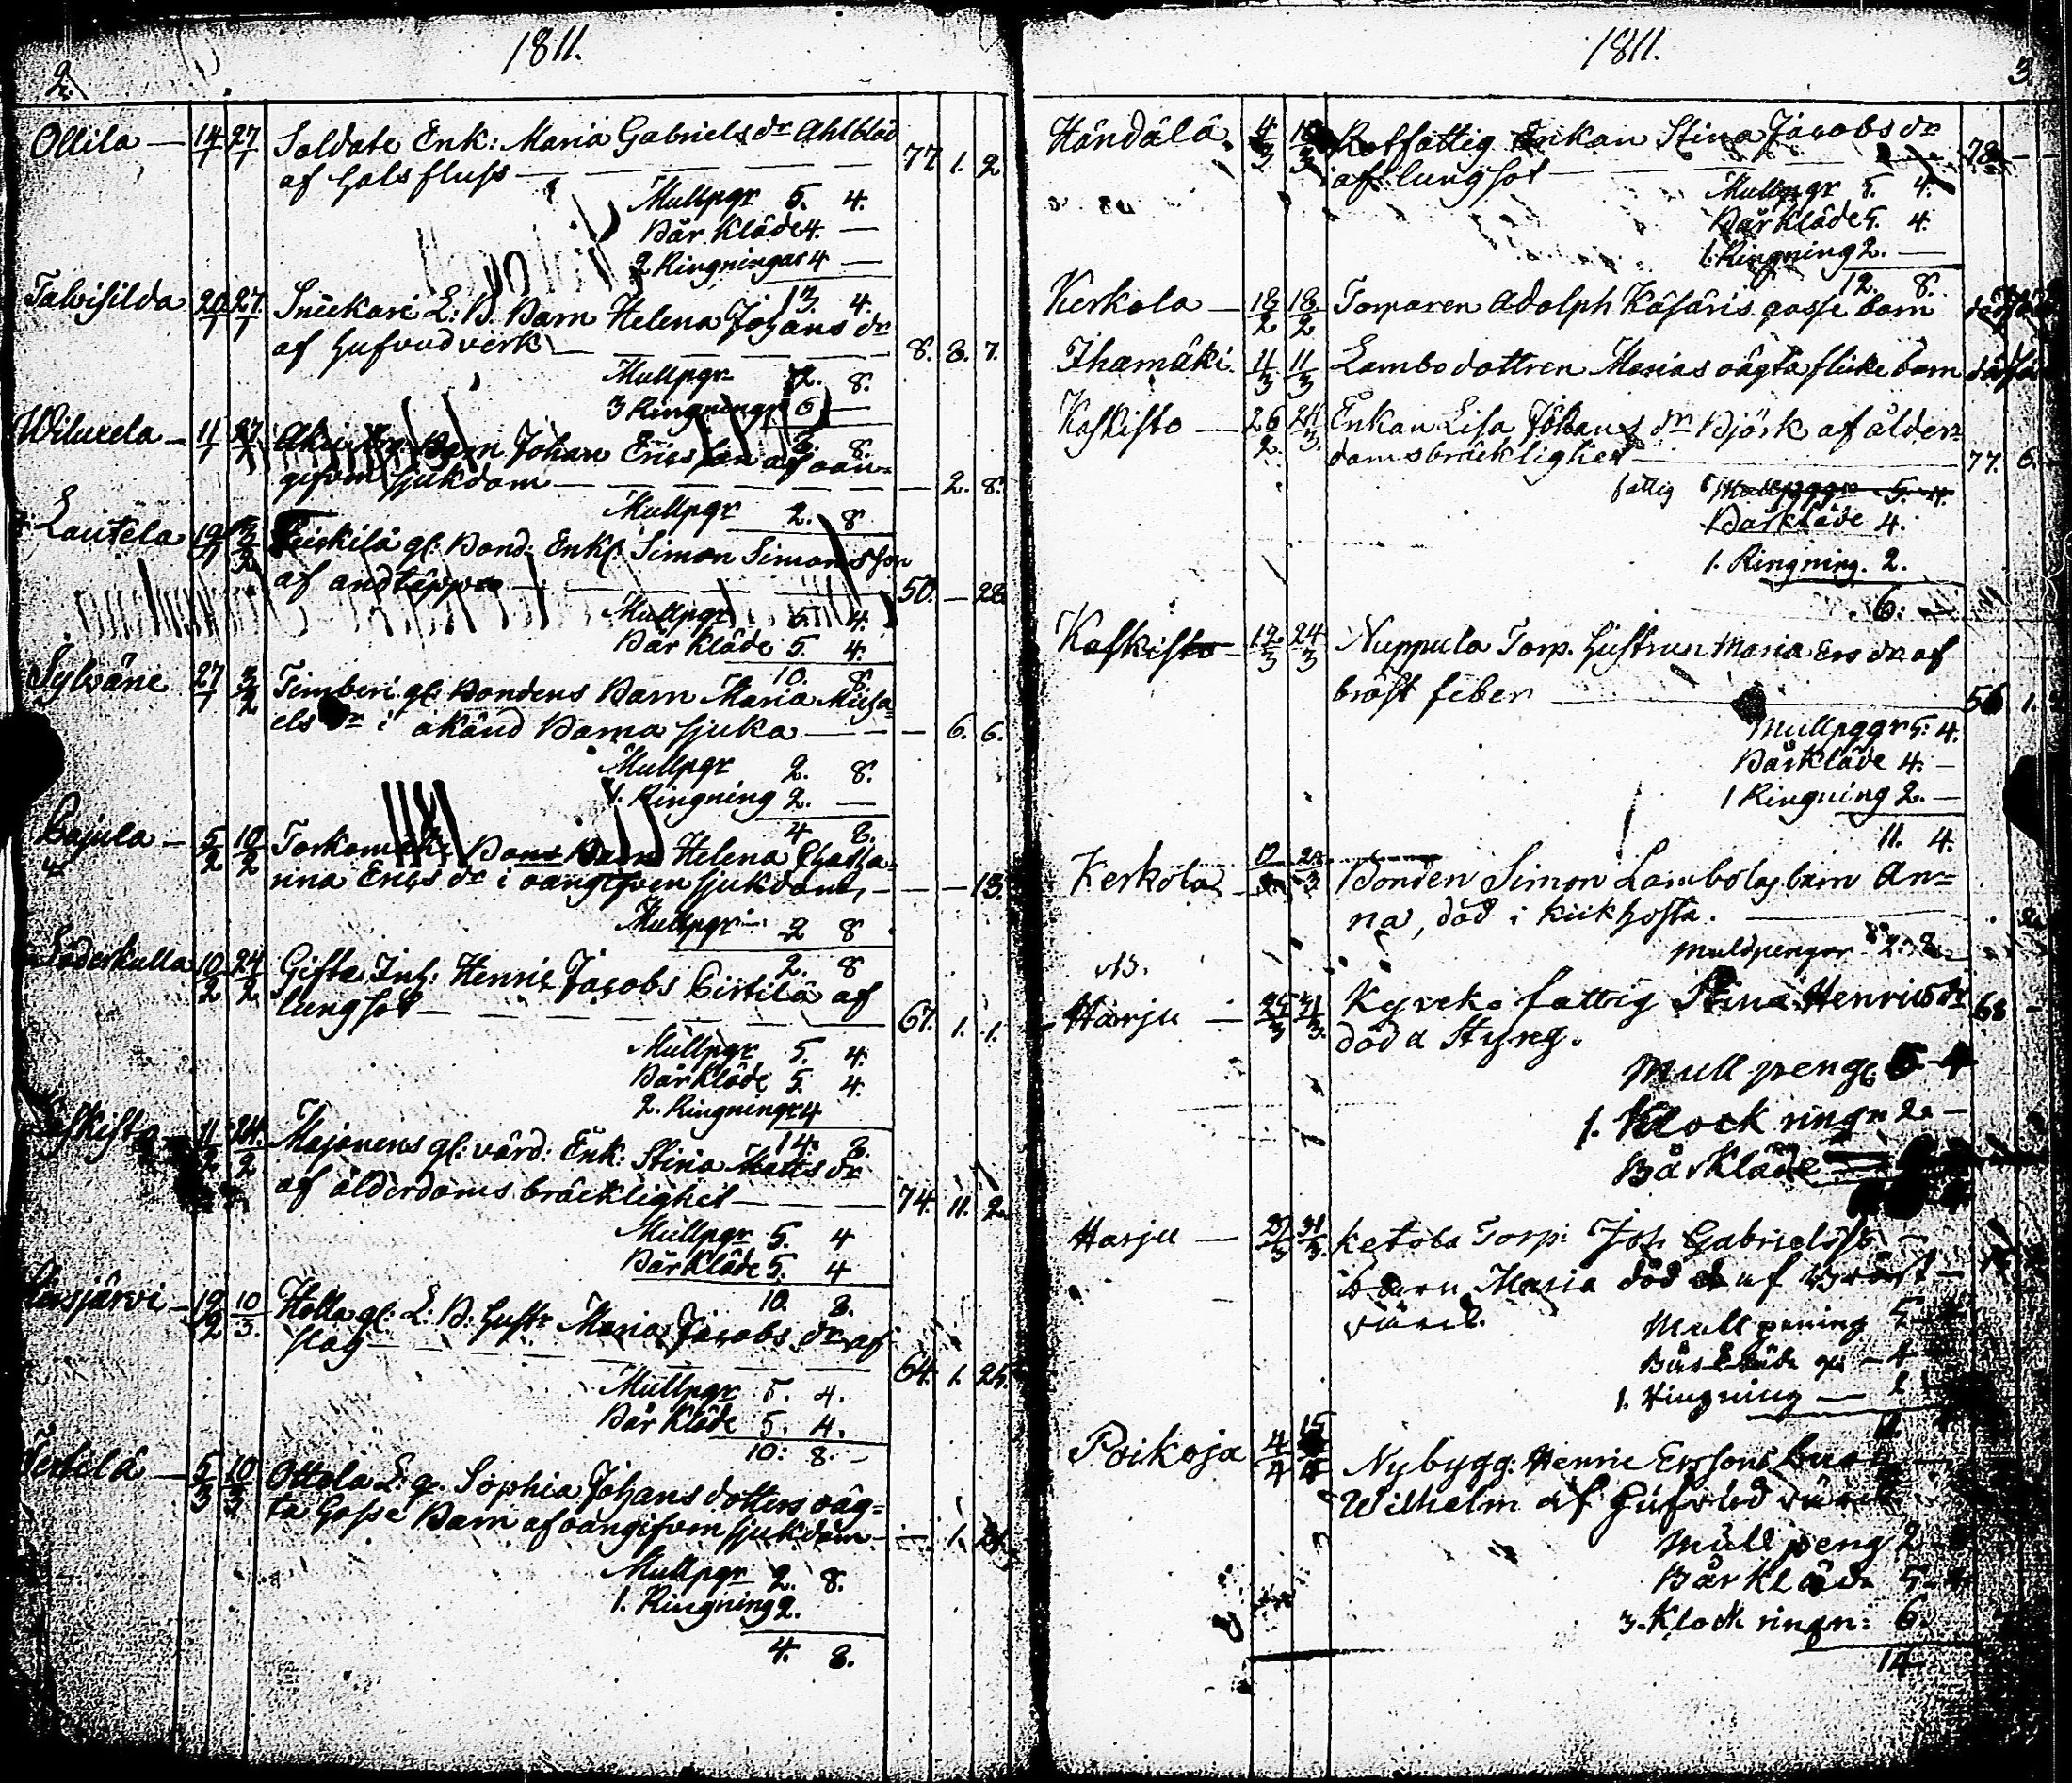 2.
1811.
Ollila — 14/1 27/1 Soldate Enk: Maria Gabriels dr Ahlblad
af halsfluss — 77. 1. 2
Mullpgr 5. 4.
Bår Kläde 4. —
2 Ringningar 4 —
13. 4.
Talvisilda 20/1 27/1 L: B. Barn Helena Johans dr
af hufvudverk — 8. 8. 7.
Mullpgr 2. 8.
3 Ringningr 6 —
8. 8.
11/1 27/1 Barn Johan Ericsson af oan-
gifven sjukdom — — 2. 8.
Mullpgr 2. 8
Lautela 19/1 3/2 gl: Bond: Enkl: Simon Simonsson
af andtäppa — 50. — 28
Mullpgr 5. 4.
Bår Kläde 5. 4.
10. 8.
Sylväne 27/1 3/2 Timberi gl: Bondens Barn Maria Micha-
els dr i okänd Barna sjuka — — 6. 6.
Mullpgr 2. 8.
1. Ringning 2. —
4 8.
Cajula — 5/2 10/2 Barn Helena Catha-
rina Erics dr i oangifven sjukdom, — — — 13.
Mullpgr 2 8
2. 8
Söderkulla 10/2 24/2 Gifte Inh: Henric Jacobs Cirtilä af
lungsot — 67. 1. 1.
Mullpgr 5. 4.
Bårkläde 5. 4.
2. Ringningr 4
14. 8.
Kaskisto 11/2 24/2 Majorens gl: värd: Enk: Stina Matts dr
af ålderdoms bräcklighet — 74. 11. 2
Mullpgr 5. 4
Bårkläde 5. 4
10. 8.
19/2 10/3 Holla gl: L: B: hustr Maria Jacobs dr af
slag — 64. 1. 25.
Mullpgr 5. 4.
Bår Kläde 5. 4.
10: 8. —
5/3 10/3 Ottola L: gl. Sophia Johans dotters oäg-
ta Gosse Barn af oangifven sjukdom — — 1.
Mullpgr 2. 8.
1. Ringning 2.
4. 8.
1811.
3.
Händälä. 4/3 Rotfattig Enkan Stina Jacobs dr
af lungsot — 78. — —
Mullpgr 5. 4.
Bår Kläde 5. 4.
1. Ringning 2. —
12. 8.
Kerkola — 18/2 18/2 Torparen Adolph Käsäris gosse barn
Ihamäki. 11/3 11/3 Lambo dottren Marias oägta flicke barn
Kaskisto — 26/2 24/3 Enkan Lisa Johans dr Björk af ålder-
domsbräcklighet — 77. 6. —
fattig Mullpggr 5. 4.
Bårkläde 4.
1. Ringning. 2.
6: —
Kaskisto — 12/3 24/3 Nuppula Torp. hustrun Maria Ers dr af
bröst feber — 56 1.
Mullpggr 5. 4.
Bårkläde 4. —
1 Ringning 2. —
11. 4.
Kerkola — Bonden Simon Lambolas barn An-
na, död i kikhosta. —
Muldpengar 2. 8.
NB.
Harju — 25/3 31/3 Kyrcko fattig Stina Henrics dr 68 —
död a Styng.
Mull peng. 5 4
1. Klock ringn 2. —
BårKläde
Harju — 31/3 Ketola Torp: Joh Gabrielss
barn Maria död af Bröst-
värck.
Mull pening 5 4
1. Ringning — 2
11.
Poikoja 4/4 15/4 Nybygg. Henric Erssons
Wilhelm af hufvud värck
Mull peng 2
Bår Kläde 5.
3. Klock ringn: 6.
14